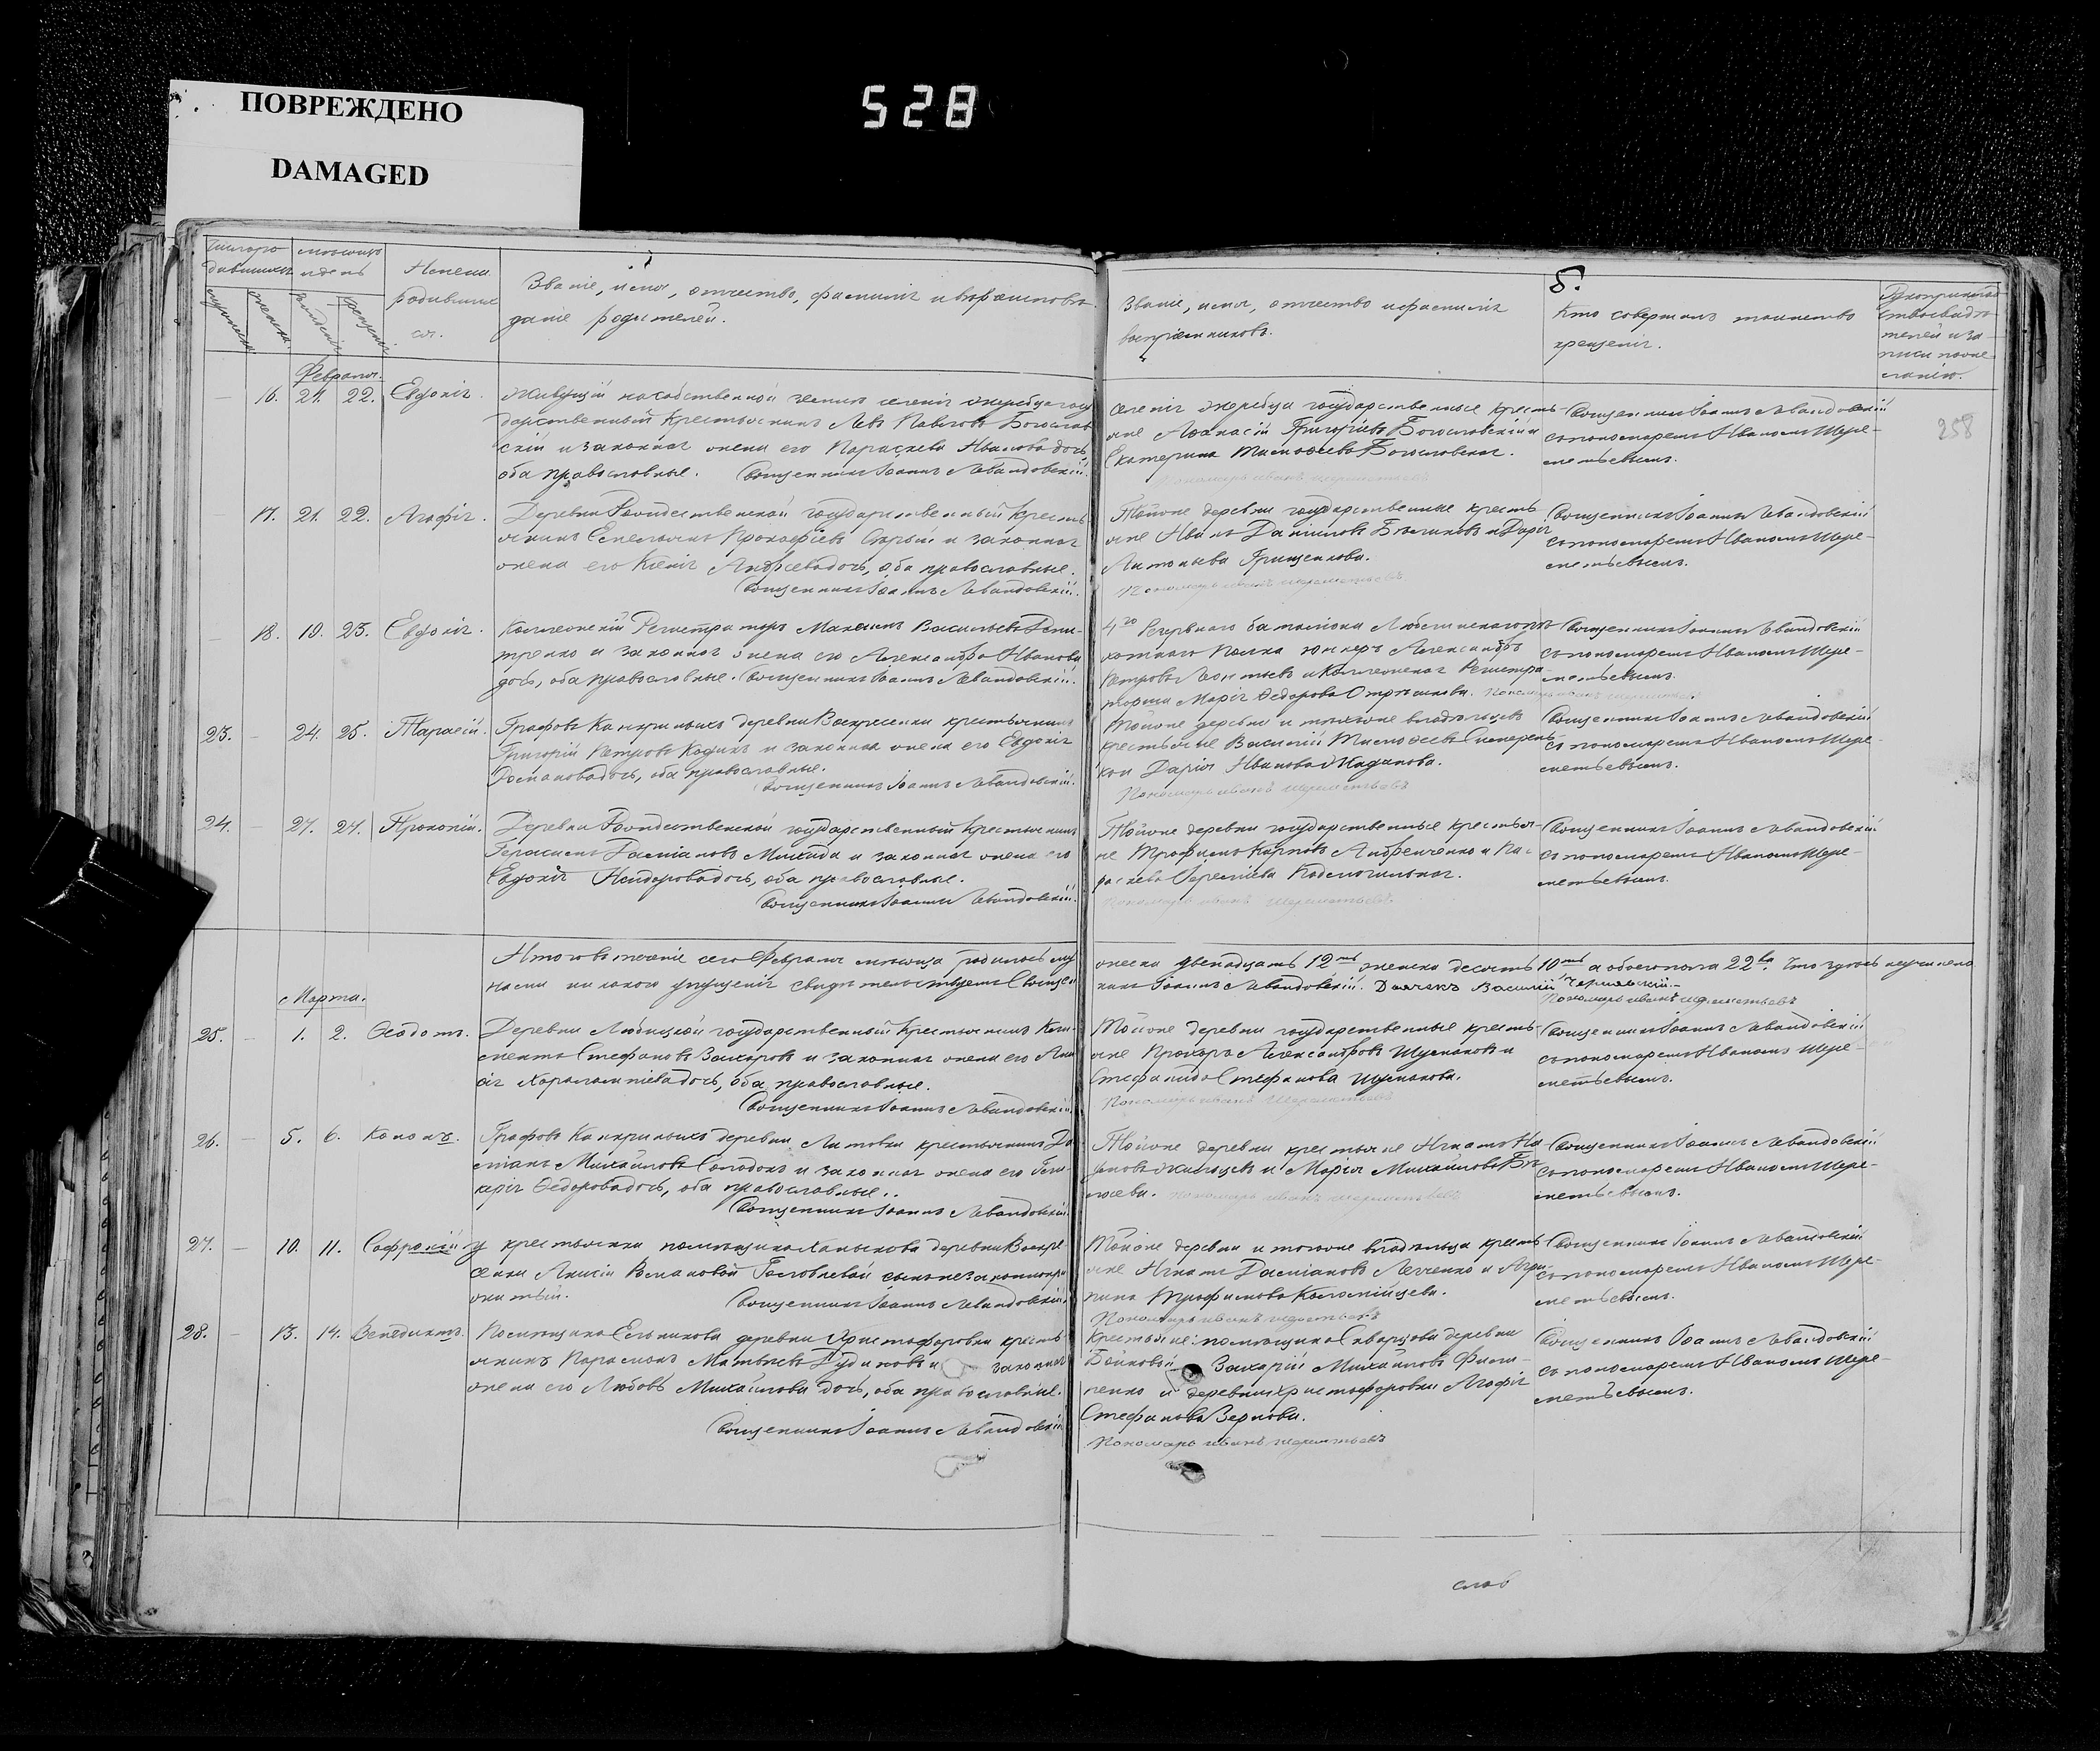 ПОВРЕЖДЕНО
DAMAGED
528
Имена
родивших
ся.
Званіе, имя, отчество, фамилія и вѣроисповѣ
даніе родителей.
Званіе, имя, отчество и фамилія
воспріемниковъ.
Кто совершалъ таинство
крещенія.
Рукоприклад
ство свидѣ
телей и за
писи по же
ланію.
Февраля.
16. 21. 22. Евдокія.
Живущій на собственной земли селенія жеребца госу
дарственный крестьянинъ Левъ Павловъ Богослав
скій и законная жена его Параскева Иванова дочь,
оба православные. Священникъ Іоаннъ Левандовскій.
селенія жеребца государственные кресть
яне Афанасій Григорьевъ Богословскій и
Екатерина Тимофеева Богословская.
Пономарь Иванъ Шереметьевъ
Священникъ Іоаннъ Левандовскій
съ пономаремъ Иваномъ Шере-
метьевымъ.
258
17. 21. 22. Агафія.
Деревни Рождественской государственный кресть
янинъ Емельянъ Прокофіевъ и законная
жена его Ксенія Андреева дочь, оба православные.
Священникъ Іоаннъ Левандовскій.
Тойже деревни государственные кресть
яне Иванъ Даніиловъ и Дарія
Антоньева Грищенкова.
Пономарь Иванъ Шереметьевъ
Священникъ Іоаннъ Левандовскій
съ пономаремъ Иваномъ Шере-
метьевымъ.
18. 19. 23. Евдокія.
Коллежскій Регистраторъ Максимъ Васильевъ Дми-
тренко и законная жена его Александра Иванова
дочь, оба православные. Священникъ Іоаннъ Левандовскій.
4го Резервнаго баталіона Люблинскаго пѣ
хотнаго полка юнкеръ Александръ
Петровъ Леонтьевъ и Коллежская Регистра-
торша Марія Ѳедорова Отрѣшкова. Пономарь Иванъ Шереметьевъ
Священникъ Іоаннъ Левандовскій
съ пономаремъ Иваномъ Шере-
метьевымъ.
23. – 24. 25. Тарасій.
Графовъ Канкриныхъ деревни Воскресенки крестьянинъ
Григорій Петровъ Кодинъ и законная жена его Евдокія
Романова дочь, оба православные.
Священникъ Іоаннъ Левандовскій.
Тойже деревни и тѣхже владѣльцевъ
крестьяне Василій Тимофеевъ
и Дарія Иванова
Пономарь Иванъ Шереметьевъ
Священникъ Іоаннъ Левандовскій
съ пономаремъ Иваномъ Шере-
метьевымъ.
24. – 27. 27. Прокопій.
Деревни Рождественской государственный крестьянинъ
Герасимъ Даміановъ и законная жена его
Евдокія Исидорова дочь, оба православные.
Священникъ Іоаннъ Левандовскій.
Тойже деревни государственные крестья-
не Трофимъ Карповъ Андрейченко и Па-
раскева Подмогильная.
Пономарь Иванъ Шереметьевъ
Священникъ Іоаннъ Левандовскій
съ пономаремъ Иваномъ Шере-
метьевымъ.
Итого въ теченіе сего Февраля мѣсяца родилось му
жеска двенадцать 12ть женска десять 10ть а обоего пола 22ва. Что здѣсь неучинено
нами никакого упущенія свидѣтельствуемъ Священ
никъ Іоаннъ Левандовскій. Дьячекъ Василій Чернявскій.
Пономарь Иванъ Шереметьевъ
Марта.
25. – 1. 2. Ѳеодотъ.
Деревни Любицкой государственный крестьянинъ Кли-
ментъ Стефановъ Захаровъ и законная жена его Ан
сія Харалампіева дочь, оба православные.
Священникъ Іоаннъ Левандовскій
Тойже деревни государственные кресть-
яне Прохоръ Александровъ Шумаковъ и
Стефанида Стефанова Шумакова.
Пономарь Иванъ Шереметьевъ
Священникъ Іоаннъ Левандовскій
съ пономаремъ Иваномъ Шере-
метьевымъ.
26. – 5. 6. Кононъ.
Графовъ Канкриныхъ деревни Литовки крестьянинъ Да
міанъ Михайловъ Солодокъ и законная жена его Гли-
керія Ѳедорова дочь, оба православные.
Священникъ Іоаннъ Левандовскій.
Тойже деревни крестьяне Игнатъ
и Марія Михайлова
Пономарь Иванъ Шереметьевъ
Священникъ Іоаннъ Левандовскій
съ пономаремъ Иваномъ Шере-
метьевымъ.
27. – 10. 11. Софроній
у крестьянки помѣщика Ханыкова деревни Воскре
сенки Анисіи Романовой сынъ незаконнопри
житый. Священникъ Іоаннъ Левандовскій.
Тойже деревни и тогоже владѣльца кресть
яне Игнатъ Даміановъ Левченко и Агри-
пина Трофимова Коломійцева.
Пономарь Иванъ Шереметьевъ
Священникъ Іоаннъ Левандовскій
съ пономаремъ Иваномъ Шере-
метьевымъ.
28. – 13. 14. Венедиктъ.
Помѣщика Сельникова деревни Христофоровки кресть
янинъ Парамонъ Матвѣевъ Рудиковъ и законная
жена его Любовь Михайлова дочь, оба православные.
Священникъ Іоаннъ Левандовскій
Крестьяне: помѣщика Скварцова деревни
Бойковой Захарій Михайловъ Фили-
пенко и деревни Христофоровки Агафія
Стефанова Зернова.
Пономарь Иванъ Шереметьевъ
Священникъ Іоаннъ Левандовскій
съ пономаремъ Иваномъ Шере-
метьевымъ.
слаб